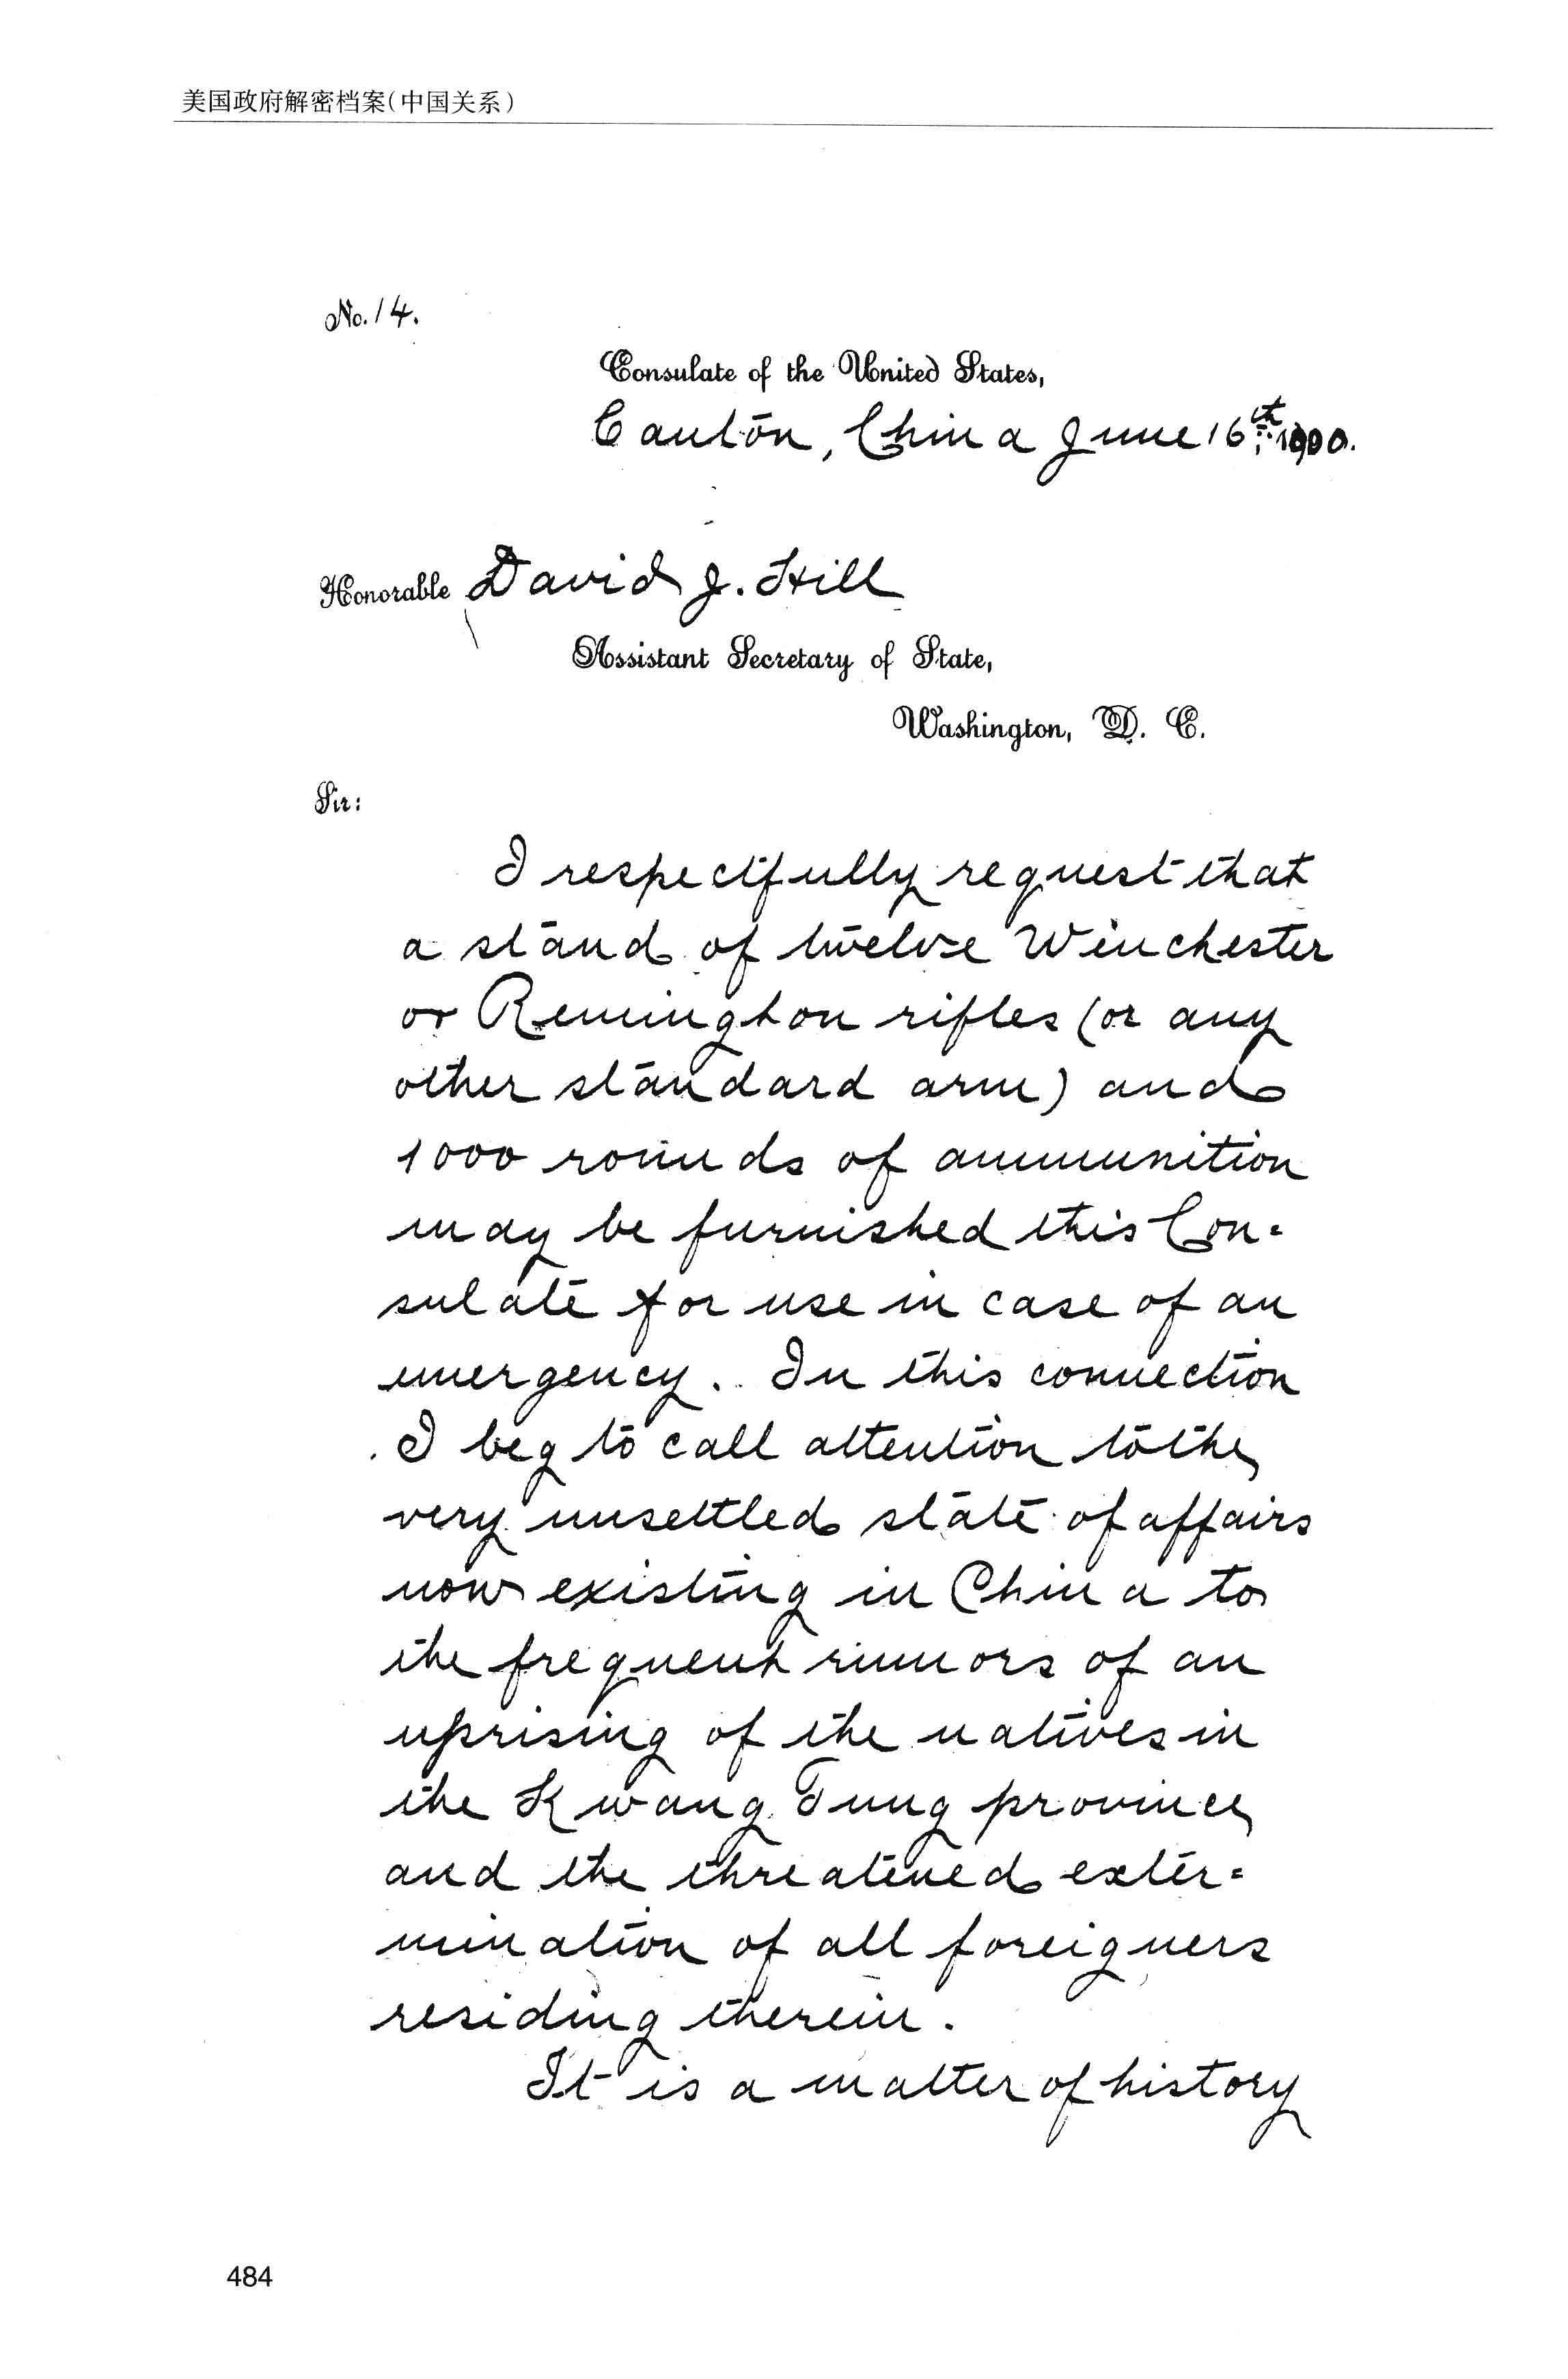 美国政府解密档案(中国关系)
No. 14.
Consulate of the United States,
Canton, China June 16th 1900.
Honorable David J. Hill
Assistant Secretary of State,
Washington, D. C.
Sir:
I respectfully request that
a stand of twelve Winchester
or Remington rifles (or any
other standard arm) and
1000 rounds of ammunition
may be furnished this Con=
sulate for use in case of an
emergency. In this connection
I beg to call attention to the
very unsettled state of affairs
now existing in China to
the frequent rumors of an
uprising of the natives in
the Kwang Tung province
and the threatened exter=
mination of all foreigners
residing therein.
It is a matter of history
484